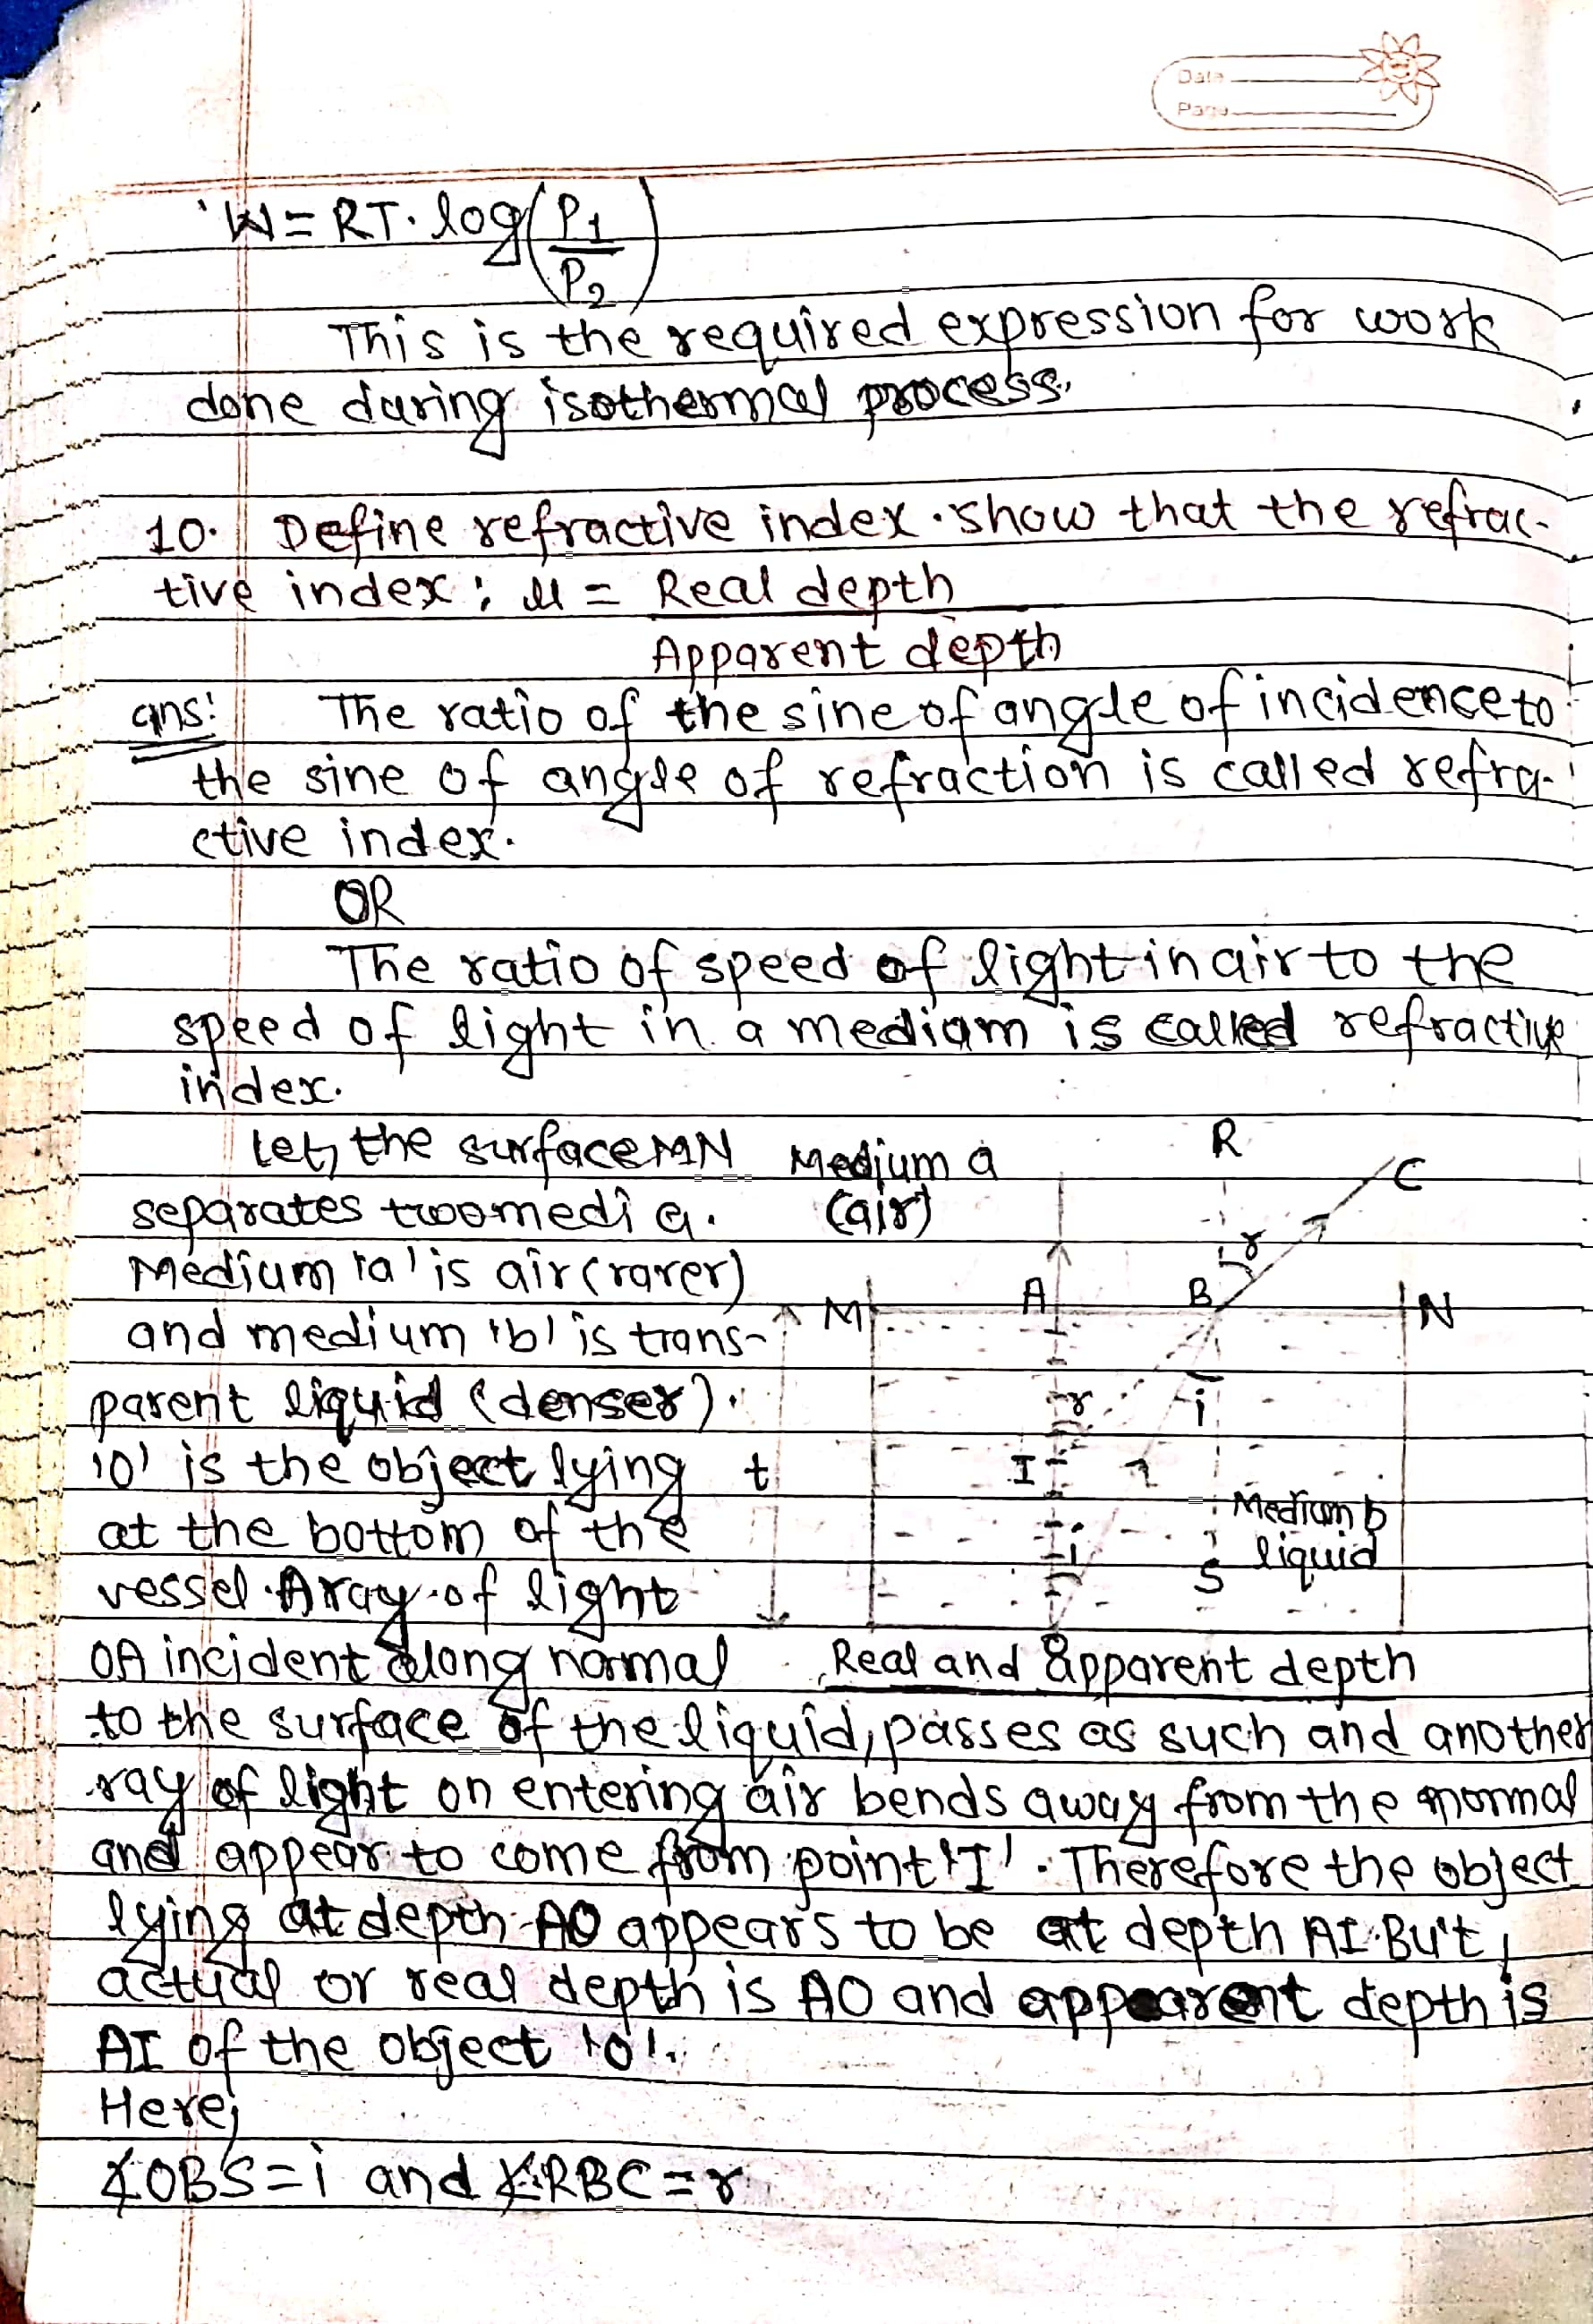 Date
Page
W = RT. log(P1/P2)
This is the required expression for work
done during isothermal process.
10. Define refractive index. show that the refrac-
tive index; μ = Real depth
Apparent depth
ans: The ratio of the sine of angle of incidence to
the sine of angle of refraction is called refra-
ctive index.
OR
The ratio of speed of light in air to the
speed of light in a medium is called refractive
index.
let, the surface MN
separates two media.
Medium 'a' is air (rarer)
and medium 'b' is trans-
parent liquid (denser).
'O' is the object lying
at the bottom of the
vessel. A ray of light
OA incident along normal
Medium a
(air)
R
C
r
M
A
B
N
r
i
t
I
Medium b
liquid
i
S
Real and apparent depth
to the surface of the liquid, passes as such and another
ray of light on entering air bends away from the normal
and appear to come from point 'I'. Therefore the object
lying at depth AO appears to be at depth AI. But,
actual or real depth is AO and apparent depth is
AI of the object 'O'.
Here,
∡OBS = i and ∡RBC = r